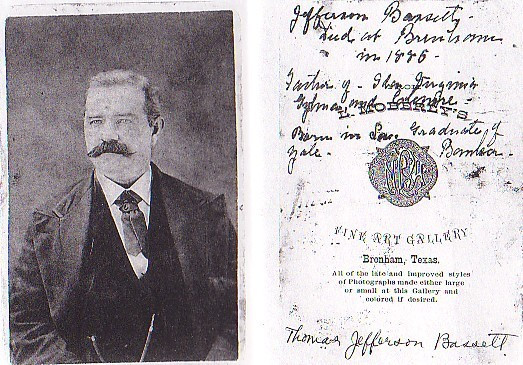 Jefferson Bassett-
Died at Brenham
in 1886-
Father of - Virginia
and
L. MOBERLY'S
Born in Graduate of
Yale. -
FINE ART GALLERY
Brenham, Texas.
All of the late and improved styles
of Photographs made either large
or small at this Gallery and
colored if desired.
Thomas Jefferson Bassett